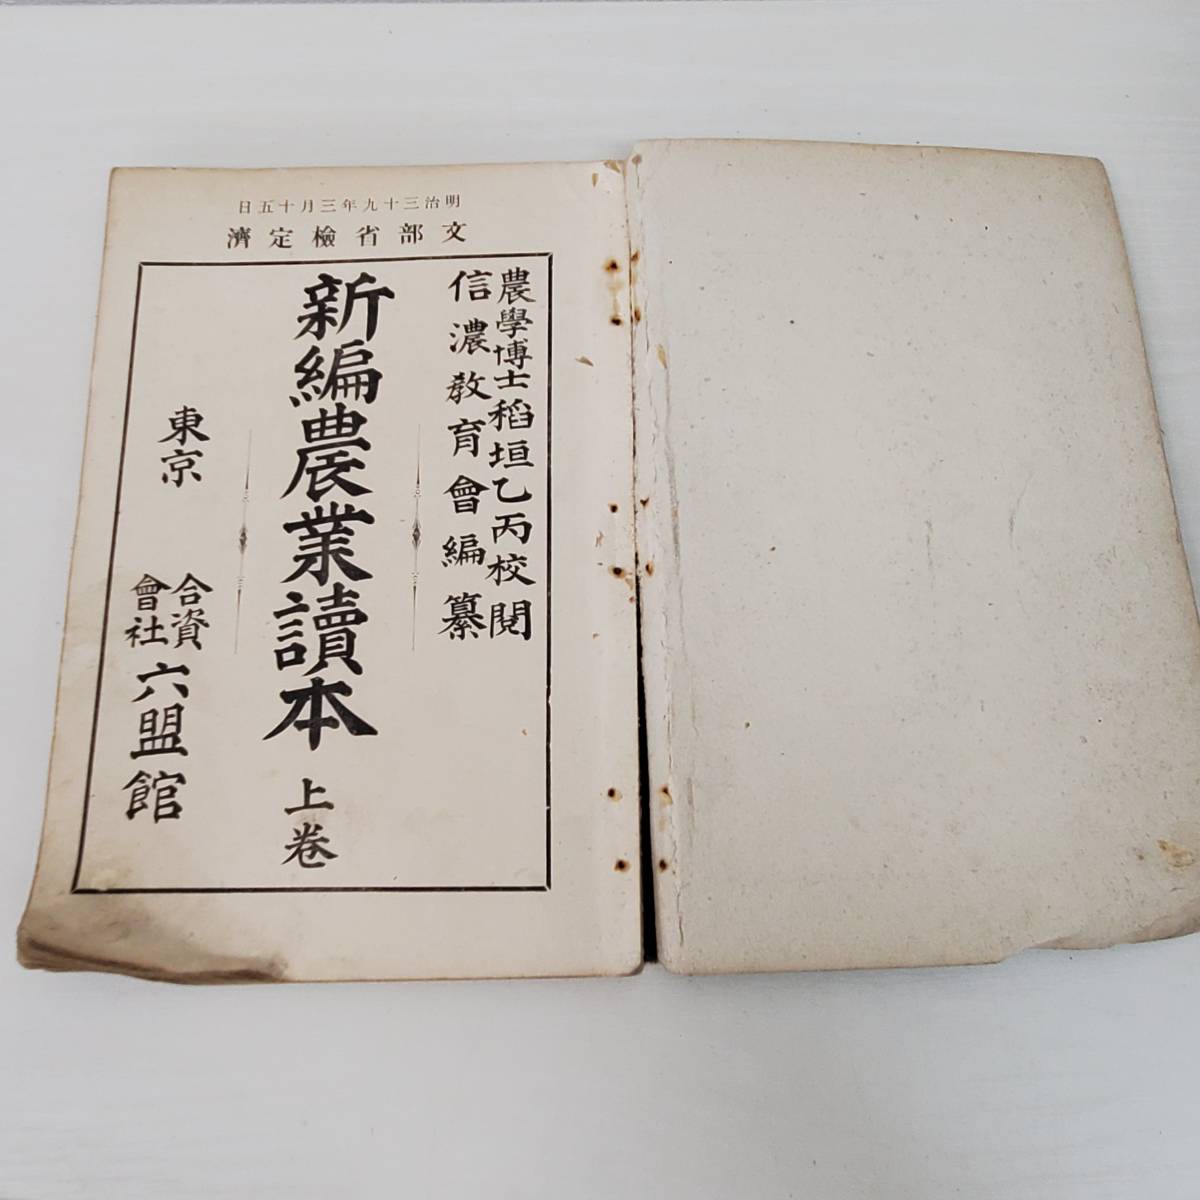 明治三十九年三月十五日
文部省檢定濟
農學博士稻垣乙丙校閱
信濃敎育會編纂
新編農業讀本 上卷
東京 合資會社六盟館